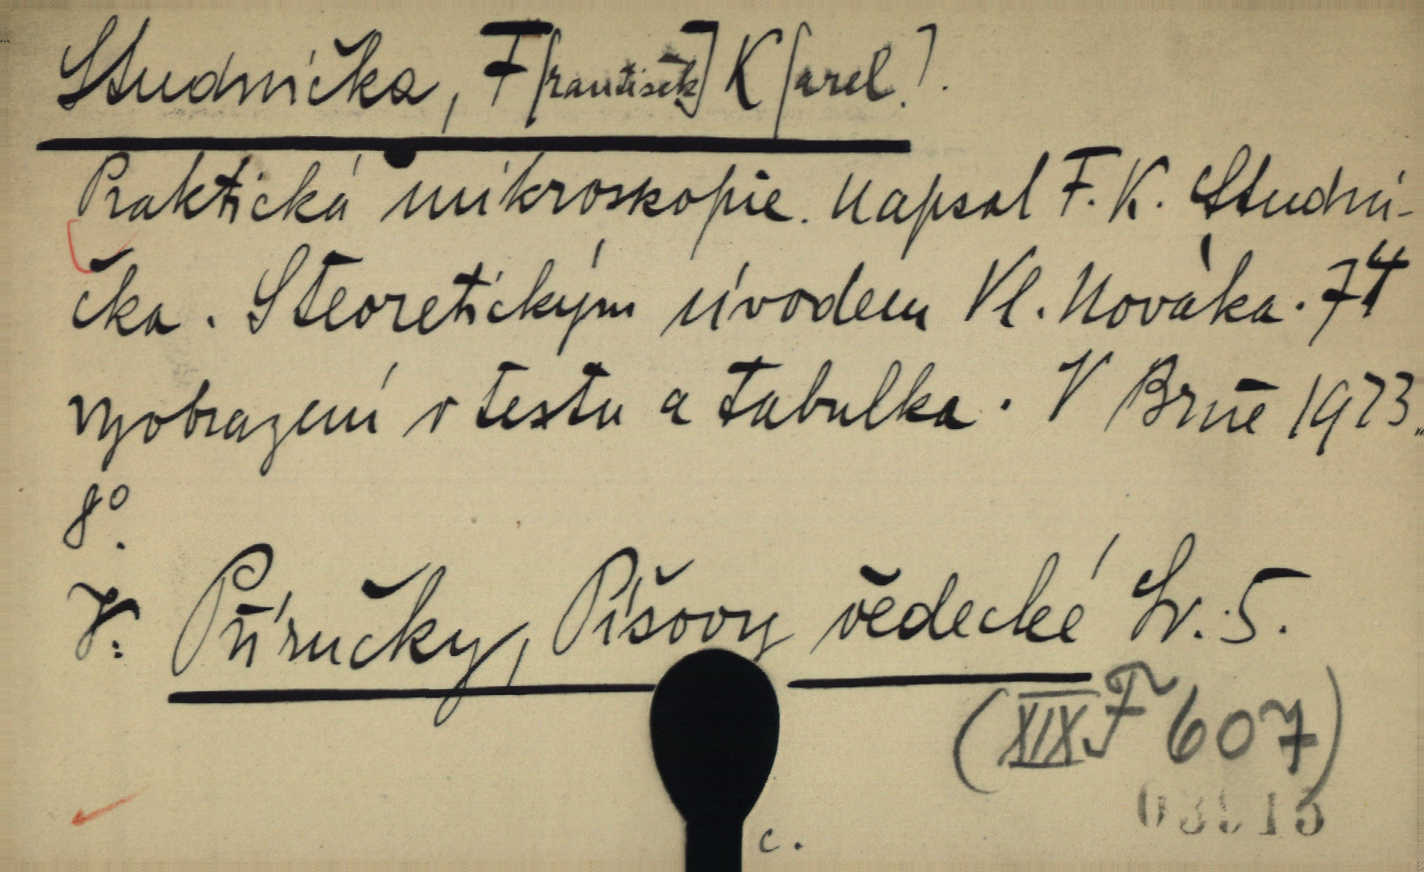 Studnička, F[rantišek] K[arel].
Praktická mikroskopie. Napsal F. K. Studni-
čka. S teoretickým úvodem Vl. Nováka. 74
vyobrazení v textu a tabulka. V Brně 1923.
8°.
V: Příručky, Píšovy vědecké Sv. 5.
(XIX F 607)
03915
c.